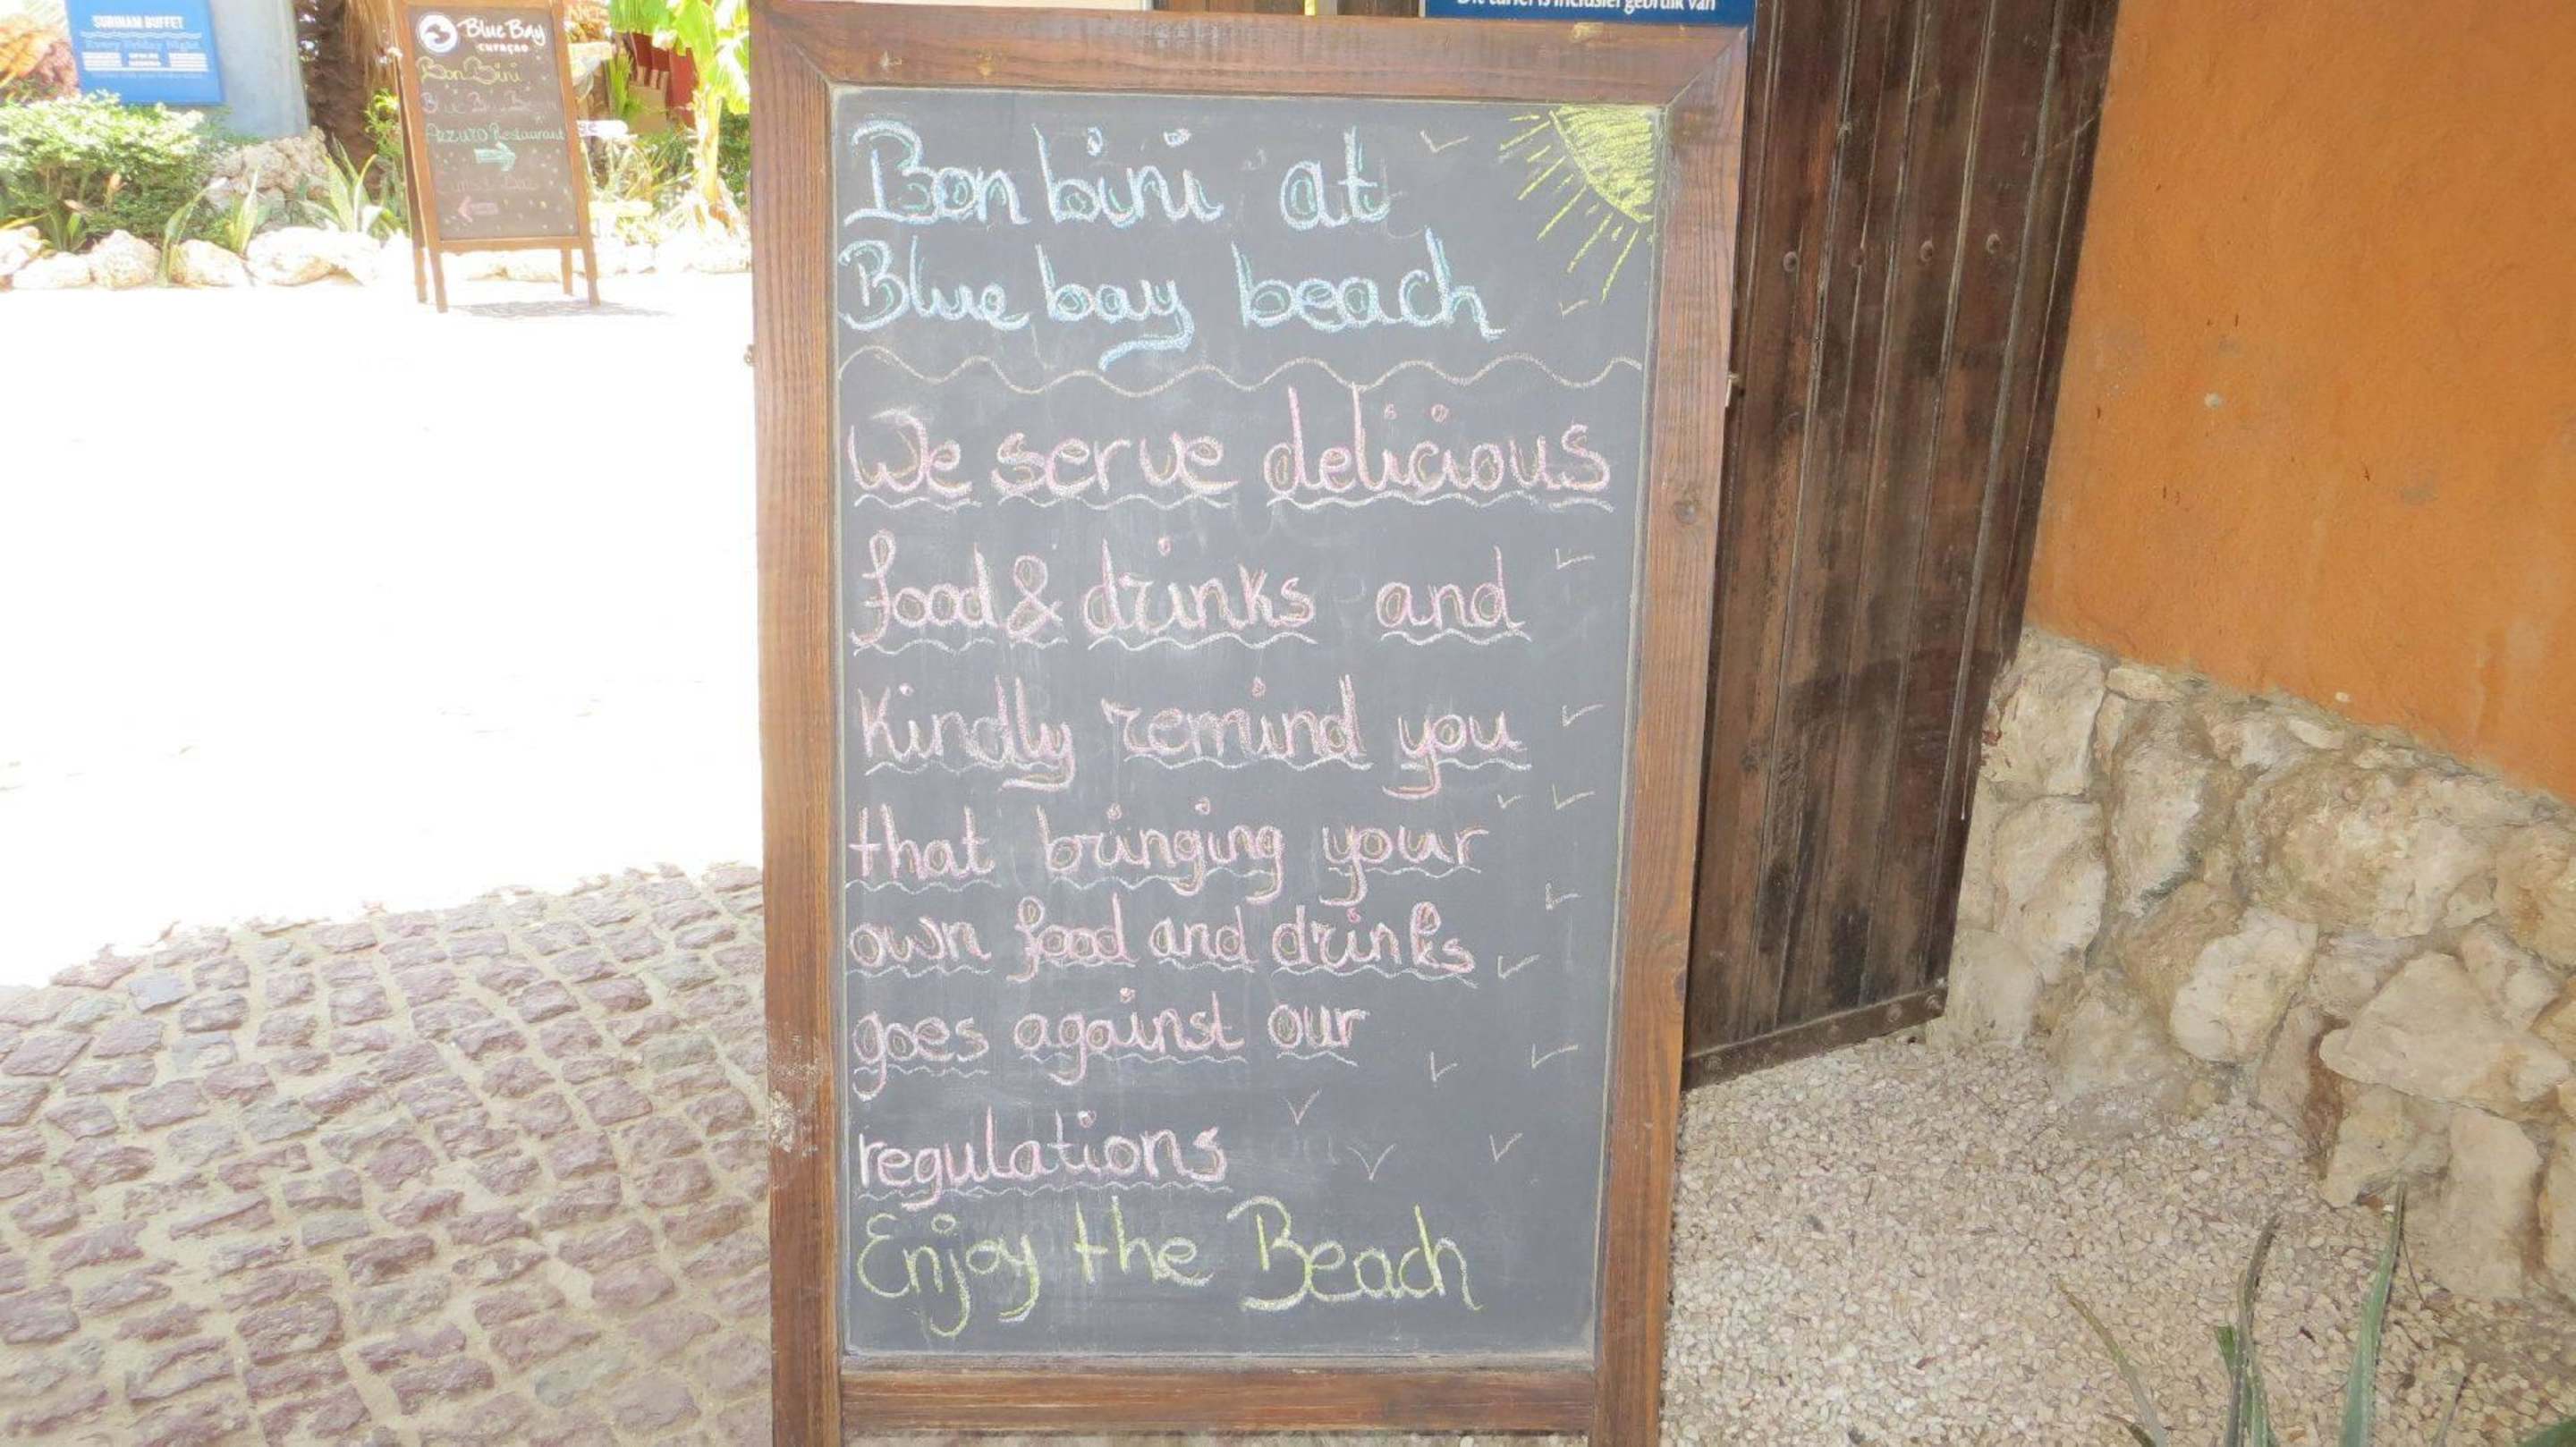 SURINAM BUFFET
Every Friday Night
Blue Bay
CURAÇAO
Bon Bini
Azzuro Restaurant
Dit tarief is inclusief gebruik van
Bon bini at
Blue bay beach
We serve delicious
food & drinks and
Kindly remind you
that bringing your
own food and drinks
goes against our
regulations
Enjoy the Beach